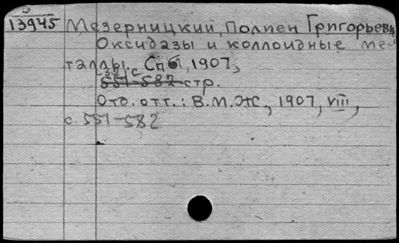 13945 Мезерницкий, Полиен Григорьевич
Оксидазы и коллоидные ме-
таллы. Спб, 1907,
32 с
551-582 стр.
Отд. отт.: В.М.Ж., 1907, VIII,
с. 551-582